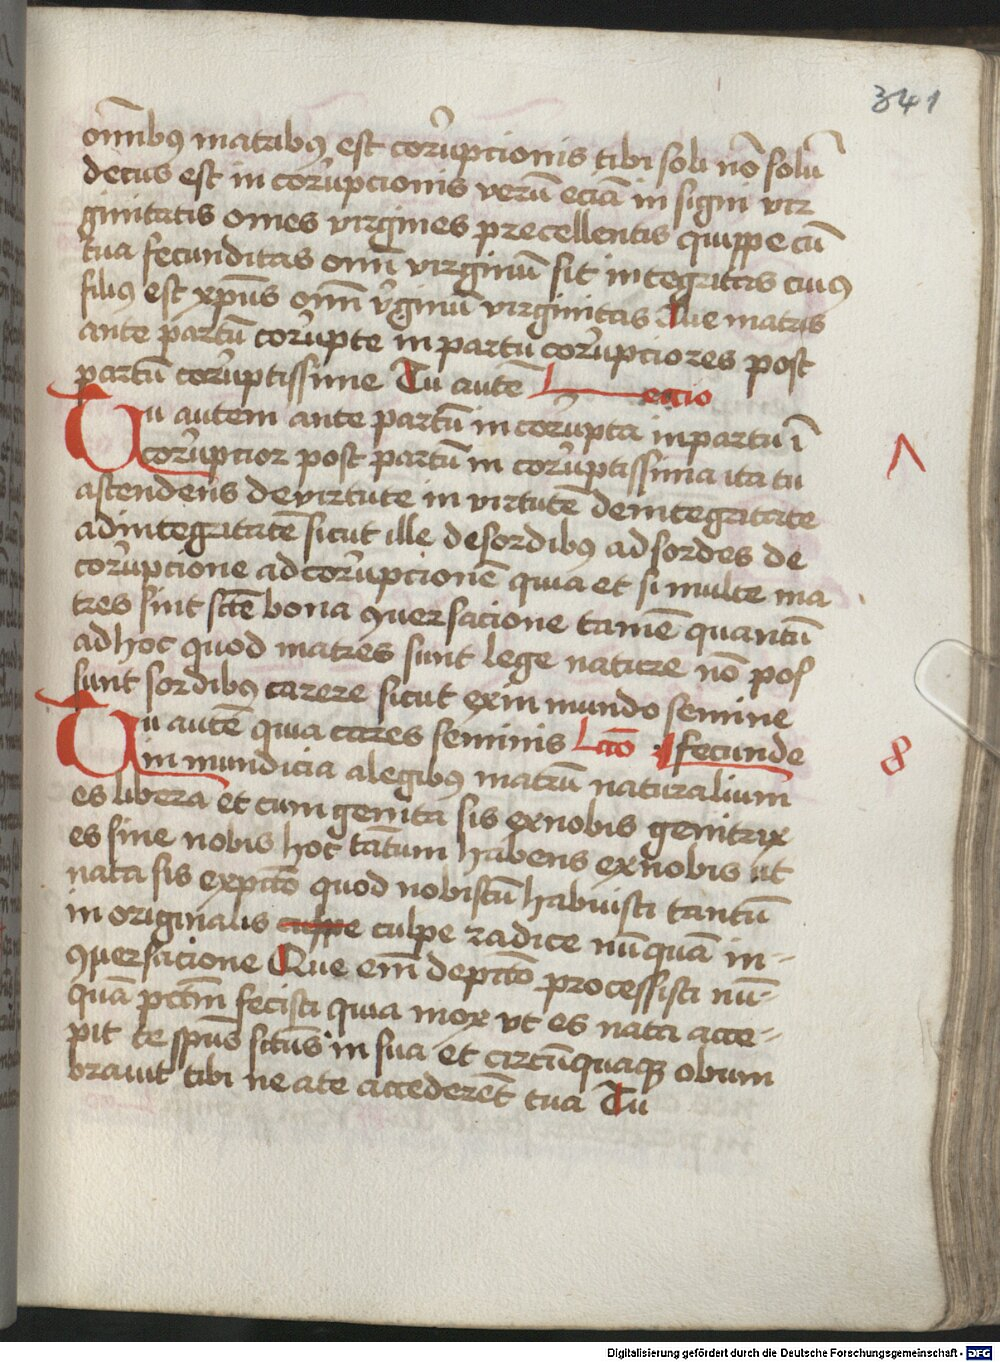 341
om̅ibꝯ matribꝯ est coru̓pcionis tibi soli no̅ solu̅
decus est in coru̓pcionis veru̅ ecia̅ in signi vir
ginitatis omes virgines precellentis quippe cu̅
tua fecunditas om̅i virginu̅ sit integritas cuiꝯ
filiꝯ est xpu̅s om̅i v̓ginu̅ virginitas Que matris
ante partu̅ coru̓pte in partu̅ coru̓pciores post
partu̅ coru̓ptissime Tu aute̅ Lectio
Tu autem ante partu̅ in coru̓pta in partu i̅
coru̓ptior post partu̅ in coru̓ptissima ita tu
ascendens de virtute in virtute̅ de integritate
ad integritate̅ sicut ille de sordibꝯ ad sordes de
coru̓pcione ad coru̓pcione̅ quia et si multe ma
tres sint scte̅ bona ꝯuersacione tame̅ quantu̅
ad hoc quod matres sunt lege nature no̅ pos
sunt sordibꝯ carere sicut ex in mundo semine
Tu aute̅ quia cares seminis Lcio̅ fecunde
in mundicia a legibꝯ matru̅ naturalium
es libera et cum genita sis ex nobis genitrix
es sine nobis hoc tantum habens ex nobis ut
nata sis ex pc̅co quod nobiscu̅ habuisti tantu̅
in originalis culpe radice nu̅qua̅ in-
ꝯuersacione Que em̅ de pc̅co processisti nu̅-
qua̅ pctm̅ fecisti quia mox ut es nata acce-
pit te spu̅s sctu̅s in sua et circu̅quaqꝫ obum
brauit tibi ne a te accederent̅ tua Tu
8